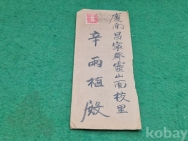 慶南昌寧郡靈山面校里
辛雨植殿
kobay